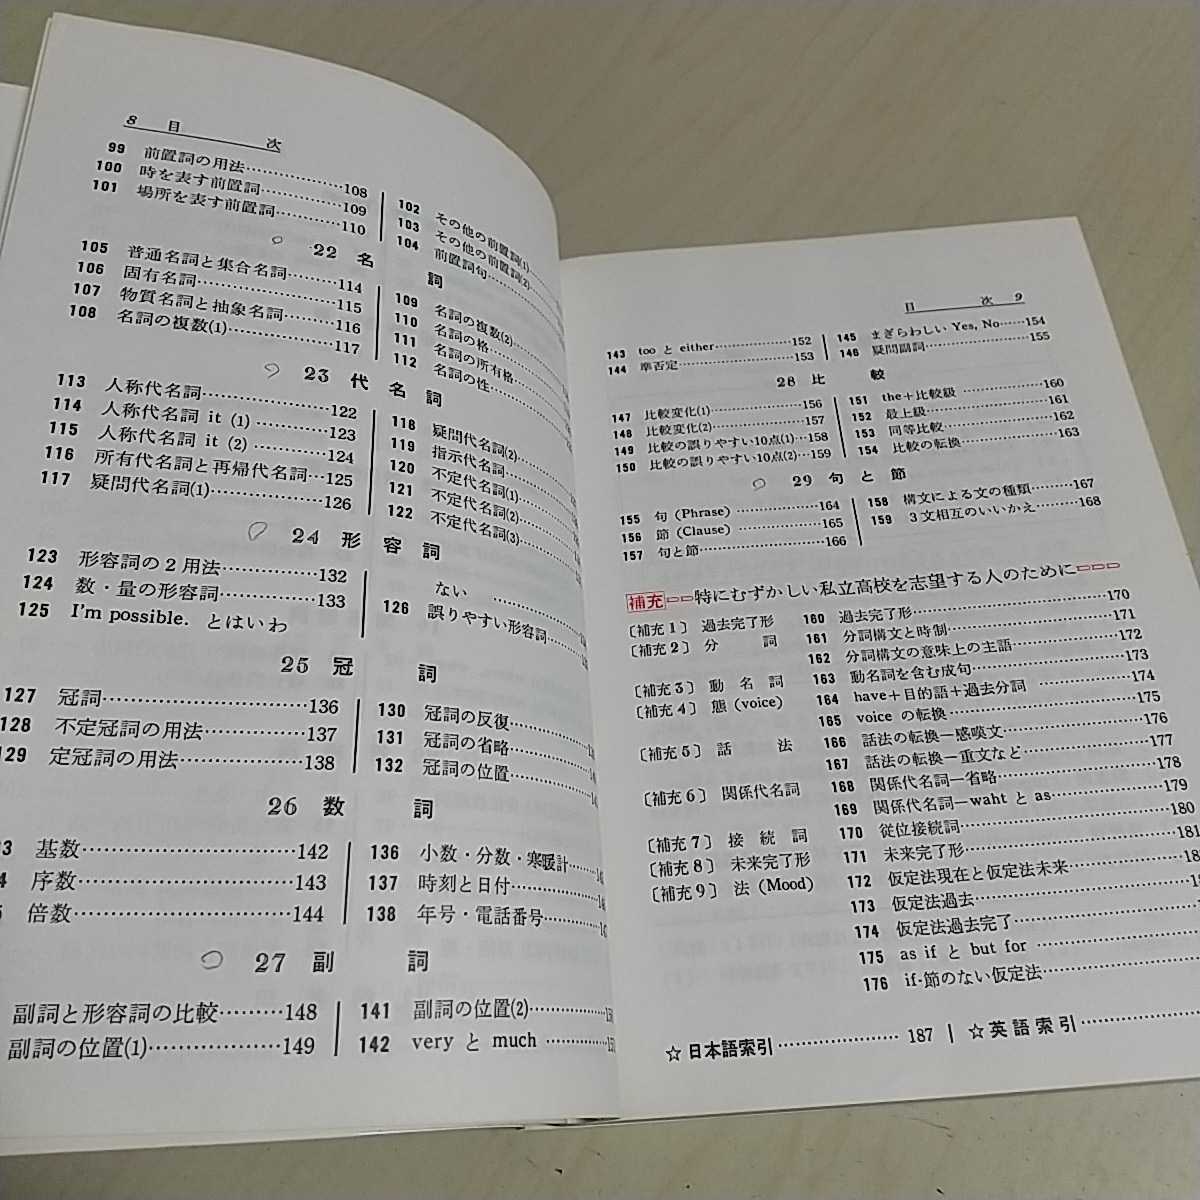 8 目 次
99 前置詞の用法…………………108
100 時を表す前置詞………………109
101 場所を表す前置詞……………110
102 その他の前置詞(1)
103 その他の前置詞(2)
104 前置詞句
22 名 詞
105 普通名詞と集合名詞………114
106 固有名詞……………………115
107 物質名詞と抽象名詞………116
108 名詞の複数(1)………………117
109 名詞の複数(2)
110 名詞の格
111 名詞の所有格
112 名詞の性
23 代 名 詞
113 人称代名詞…………………122
114 人称代名詞 it (1)…………123
115 人称代名詞 it (2)…………124
116 所有代名詞と再帰代名詞…125
117 疑問代名詞(1)………………126
118 疑問代名詞(2)
119 指示代名詞
120 不定代名詞(1)
121 不定代名詞(2)
122 不定代名詞(3)
24 形 容 詞
123 形容詞の2用法……………132
124 数・量の形容詞……………133
125 I'm possible. とはいわ
ない
126 誤りやすい形容詞
25 冠 詞
127 冠詞…………………………136
128 不定冠詞の用法……………137
129 定冠詞の用法………………138
130 冠詞の反復
131 冠詞の省略
132 冠詞の位置
26 数 詞
基数…………………………142
序数…………………………143
倍数…………………………144
136 小数・分数・寒暖計
137 時刻と日付
138 年号・電話番号
27 副 詞
副詞と形容詞の比較………148
副詞の位置(1)………………149
141 副詞の位置(2)
142 very と much
目 次 9
143 too と either………………152
144 準否定………………………153
145 まぎらわしい Yes, No……154
146 疑問副詞……………………155
28 比 較
147 比較変化(1)…………………156
148 比較変化(2)…………………157
149 比較の誤りやすい10点(1)…158
150 比較の誤りやすい10点(2)…159
151 the+比較級………………160
152 最上級………………………161
153 同等比較……………………162
154 比較の転換…………………163
29 句 と 節
155 句 (Phrase)………………164
156 節 (Clause)………………165
157 句と節………………………166
158 構文による文の種類………167
159 3文相互のいいかえ………168
補充 特にむずかしい私立高校を志望する人のために
〔補充1〕 過去完了形 160 過去完了形……170
〔補充2〕 分 詞 161 分詞構文と時制……171
162 分詞構文の意味上の主語……172
〔補充3〕 動 名 詞 163 動名詞を含む成句……173
〔補充4〕 態 (voice) 164 have+目的語+過去分詞……174
165 voice の転換……175
〔補充5〕 話 法 166 話法の転換—感嘆文……176
167 話法の転換—重文など……177
〔補充6〕 関係代名詞 168 関係代名詞—省略……178
169 関係代名詞—waht と as……179
〔補充7〕 接 続 詞 170 従位接続詞……180
〔補充8〕 未来完了形 171 未来完了形……181
〔補充9〕 法 (Mood) 172 仮定法現在と仮定法未来
173 仮定法過去
174 仮定法過去完了
175 as if と but for
176 if-節のない仮定法
☆ 日本語索引…………………187 | ☆ 英語索引